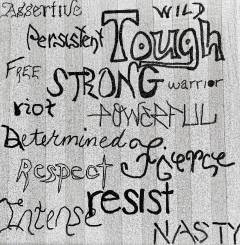 Assertive WILD
Persistent Tough
FREE STRONG warrior
riot POWERFUL
Determined
Respect Fierce
resist
Intense NASTY